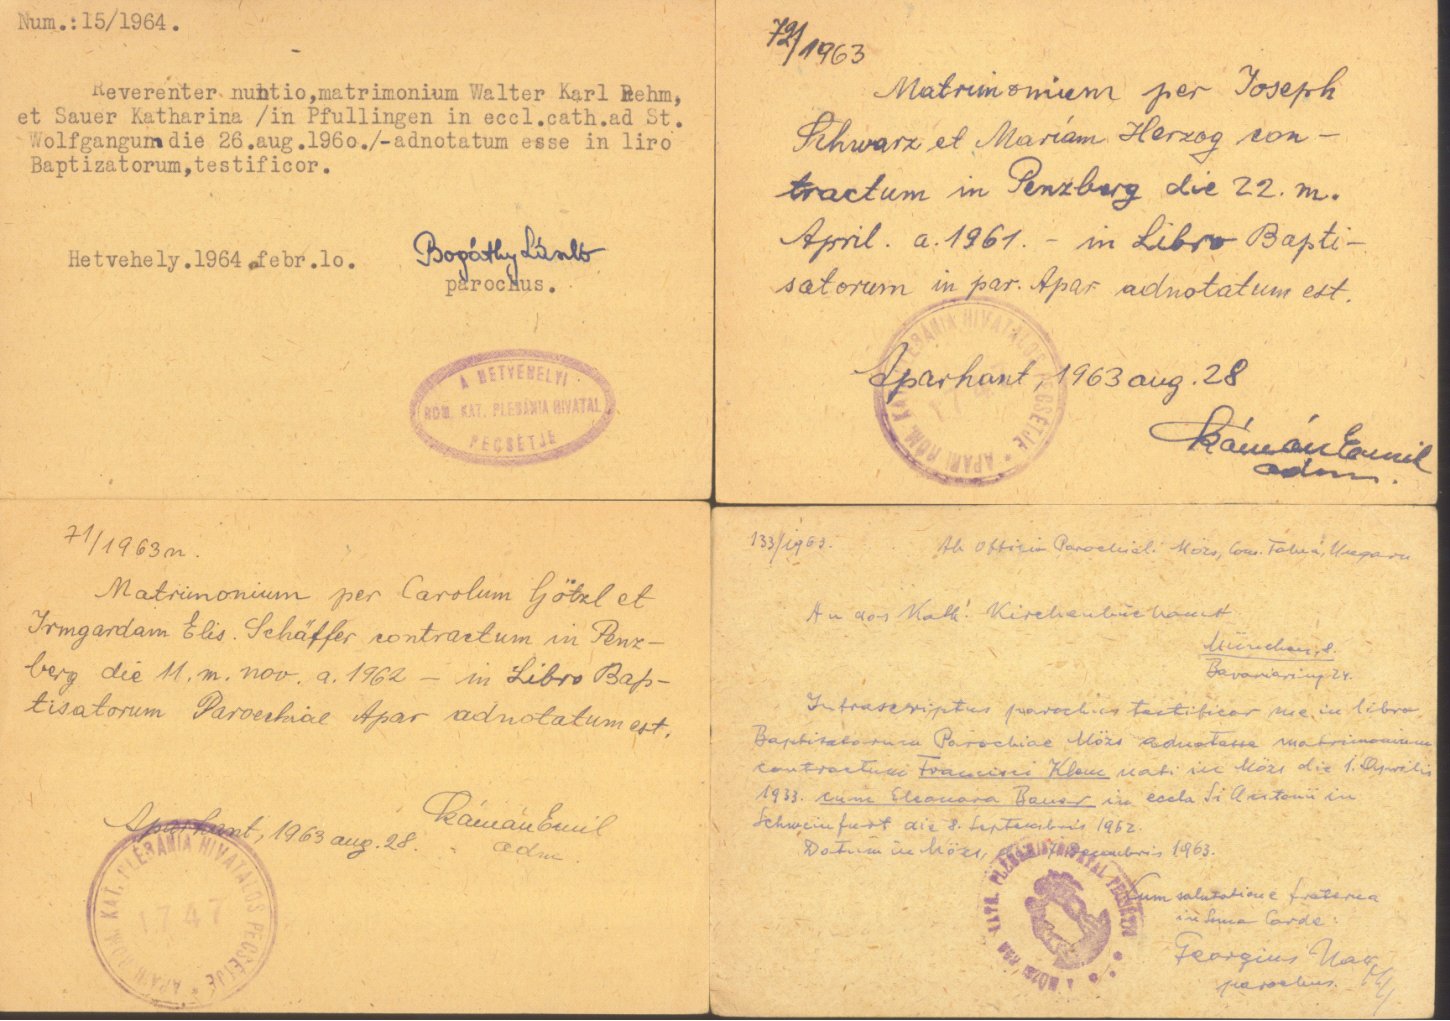 Num.:15/1964.
Reverenter nuntio,matrimonium Walter Karl Rehm,
et Sauer Katharina /in Pfullingen in eccl.cath.ad St.
Wolfgangum die 26.aug.196o./-adnotatum esse in liro
Baptizatorum,testificor.
Hetvehely.1964.febr.1o.
Bogáthy László
parochus.
A HETVEHELYI
ROM. KAT. PLEBÁNIA HIVATAL
PECSÉTJE
72/1963
Matrimonium per Joseph
Schwarz et Mariam Herzog con-
tractum in Penzberg die 22. m.
April. a. 1961. - in Libro Bapti-
satorum in par. Apar adnotatum est.
Aparhant, 1963 aug. 28
Kámán Emil
adm.
APARI ROM. KAT. PLEBÁNIA HIVATALOS PECSÉTJE *
1747
71/1963 n.
Matrimonium per Carolum Götzl et
Irmgardam Elis. Schäffer contractum in Penz-
berg die 11. m. nov. a. 1962 - in Libro Bap-
tisatorum Paroechiae Apar adnotatum est.
Aparhant, 1963 aug. 28.
Kámán Emil
adm.
APARI ROM. KAT. PLEBÁNIA HIVATALOS PECSÉTJE *
1747
133/1963.
Ab Officio Parochiali Mözs, Com. Tolna, Hungaria
An das Kath. Kirchenbuchamt
München, 8.
Bavariaring 24.
Infrascriptus parochus testificor me in libro
Baptisatorum Parochiae Mözs adnotasse matrimonium
contractum Francisci Klem nati in Mözs die 1. Aprilis
1933. cum Eleonora Bauer in eccla Si Antonii in
Schweinfurt die 8. Septembris 1962.
Datum in Mözs, Decembris 1963.
Cum salutatione fraterna
in Corde:
Georgius
parochus.
A MÖZSI ROM. KATH. PLÉBÁNIAHIVATAL